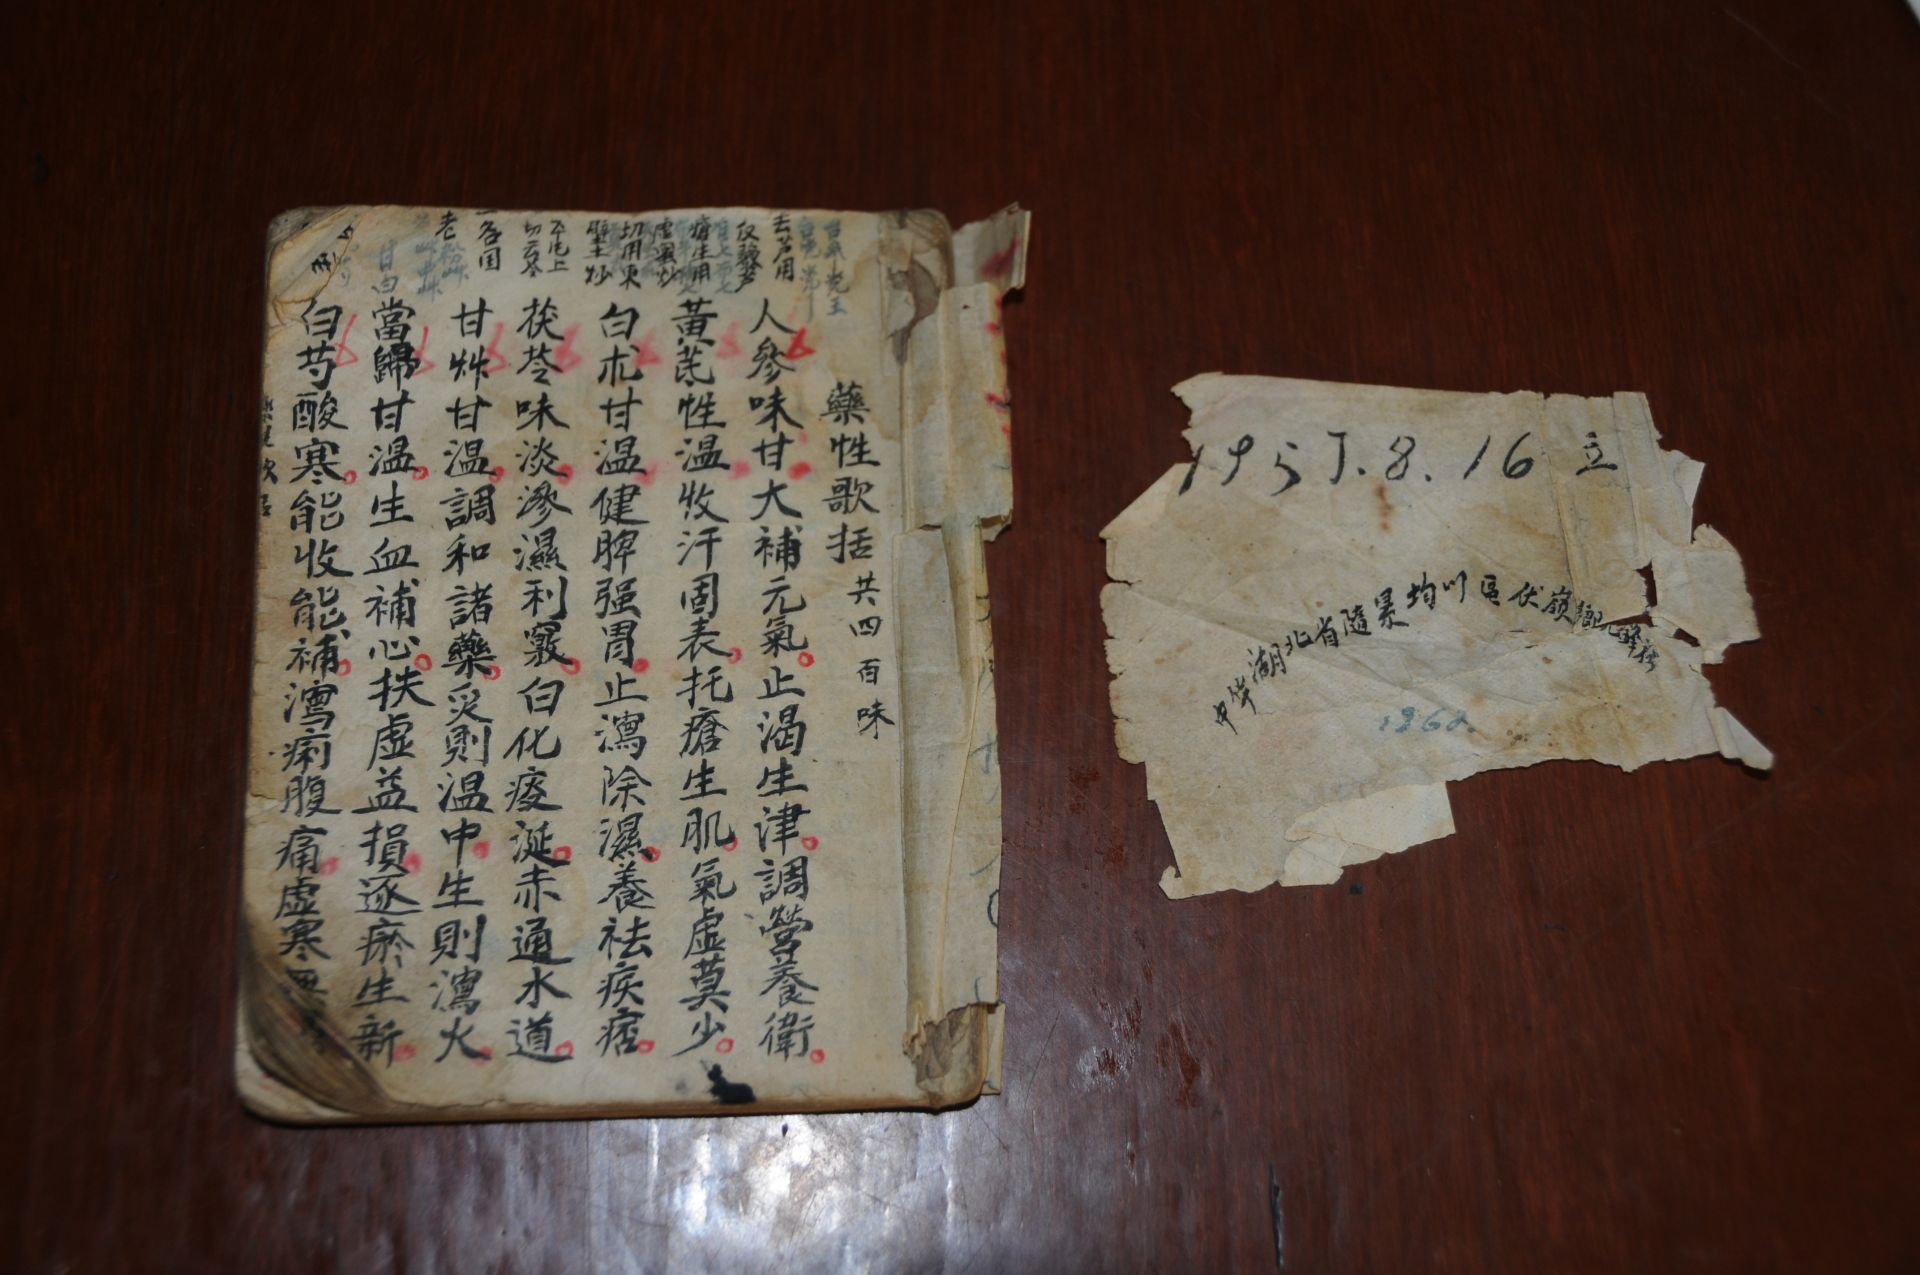 藥性歌括共四百味
人參味甘大補元氣止渴生津調營養衛
黃芪性温收汗固表托瘡生肌氣虛莫少
白朮甘温健脾强胃止瀉除濕養祛痰痞
茯苓味淡滲濕利竅白化痰涎赤通水道
甘艸甘温調和諸藥炙則温中生則瀉火
當歸甘温生血補心扶虛益損逐瘀生新
白芍酸寒能收能補瀉痢腹痛虛寒
去芦用
反藜芦
瘡生用
虛蜜炒
切用東
壁土炒
1957.8.16 立
中华湖北省隨縣均川區伏嶺鄉
1962.